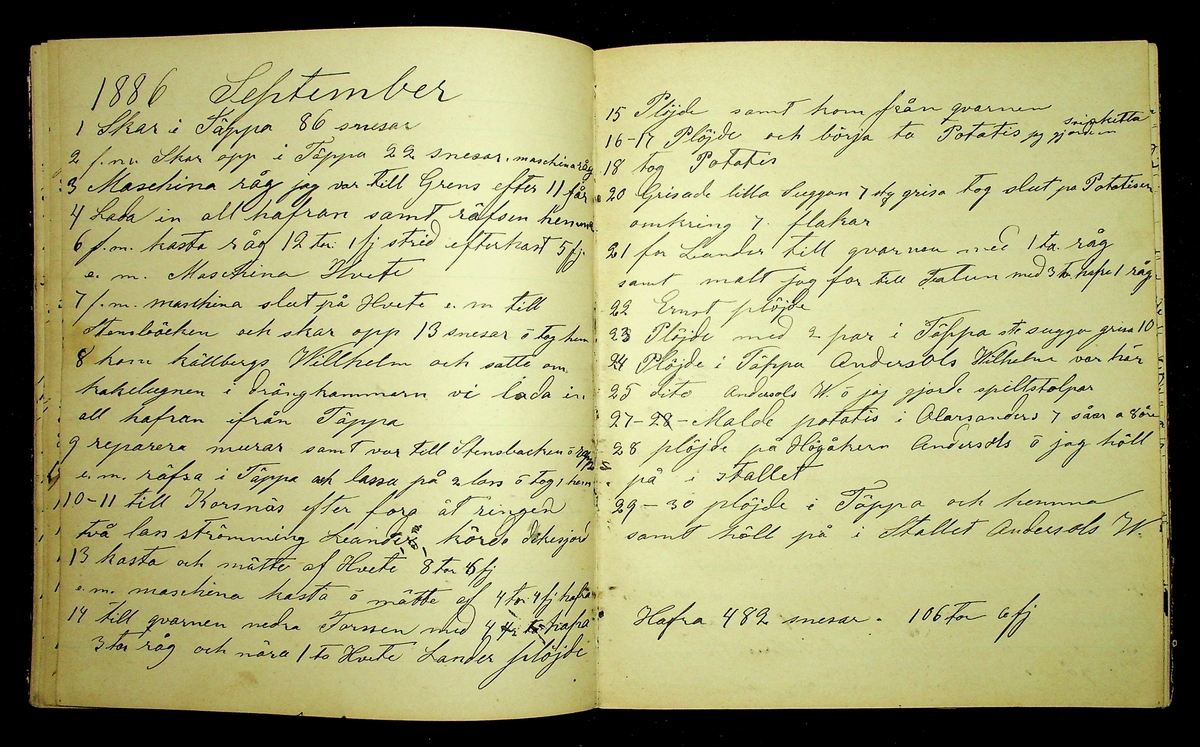 1886 September
1 Skar i Täppa 86 snesar
2 f.m. Skar opp i Täppa 22 snesar. maschina råg
3 Maschina råg jag var till Grens efter 11 får
4 Lada in all hafran samt räfsen
6 f.m. kasta råg 12 tu: 1 fj strid efterkast 5 fj.
e. m. Maschina Hvete
7 f.m. maschina slut på Hvete e. m till
Stensbäcken och skar opp 13 snesar ö tog hem
8 kom källbergs Willhelm och satte om
kakelugnen i drängkammarn vi lada in
all hafran ifrån Täppa
9 reparera murar samt var till Stensbacken ö
e.m. räfsa i Täppa och lassa på 2 lass ö tog 1 hem
10-11 till Korsnäs efter forg åt ringen
två lass strömming Leander körde
13 kasta och mätte af Hvete 8 tor 6 fj
e.m. maschina kasta ö mätte af 4 tor 4 fj hafra
14 till qvarnen nedra Forssen med 4 tor hafra
3 tor råg och nära 1 to Hvete Lander plöjde
15 Plöjde samt kom från qvarnen
16-17 Plöjde och börja ta Potatis jag gjorde en svinkätta
18 tog Potatis
20 Grisade lilla Suggan 7 sty grisa tog slut på Potatisen
omkring 7. flakar
21 for Lander till qvarnen med 1 to. råg
samt malt jag for till Fatun med 3 to hafre 1 råg
22 Ernst plöjde
23 Plöjde med 2 par i Täppa st: sugga grisa 10
24 Plöjde i Täppa Andersols Wilhelm var här
25 dito Andersols W. ö jag gjorde spiltstolpar
27-28- Malde potatis i Olarsanders 7 såar a 8 öre
28 plöjde på Högåkern Andersols ö jag höll
på i stallet
29-30 plöjde i Täppa och hemma
samt höll på i Stallet Andersols W.
Hafra 482 snesar. 106 tor 6 fj